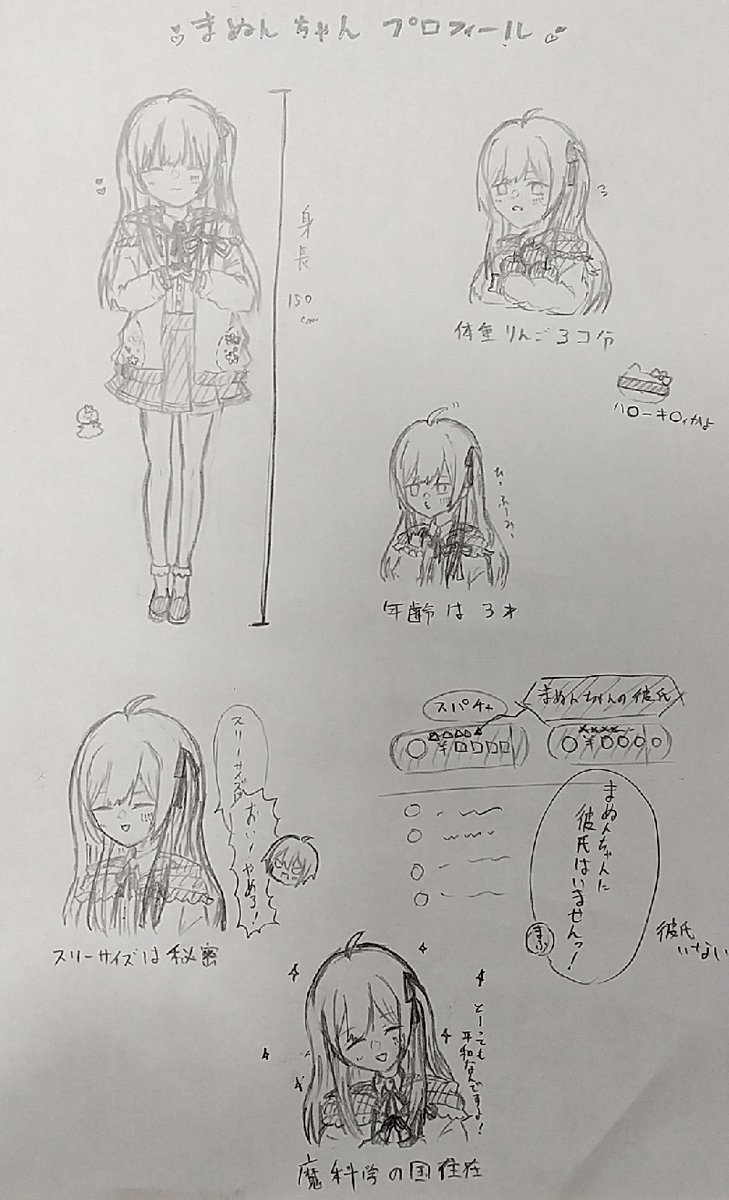 まぬんちゃん プロフィール
身長
150
cm
体重りんご3コ分
ハローキ○ィかよ
ひー ふー みー
年齢は3才
スパチャ
まぬんちゃんの彼氏
¥□□□□
¥□○○○
まぬんちゃんに
彼氏はいませんっ!
彼氏
いない
スリーサイズは
おい!やめろ!
スリーサイズは秘密
とーっても
平和なんですよ!
魔科学の国在住